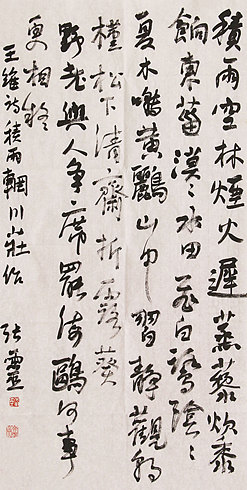 積雨空林煙火遲蒸藜炊黍
餉東菑漠々水田飛白鷺陰々
夏木囀黃鸝山中習靜觀朝
槿松下清齋折露葵
野老與人爭席罷海鷗何事
更相疑
王維詩積雨輞川莊作 張